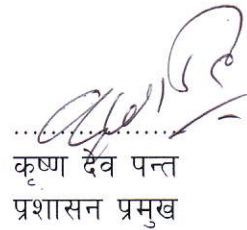 ....................
कृष्ण देव पन्त
प्रशासन प्रमुख